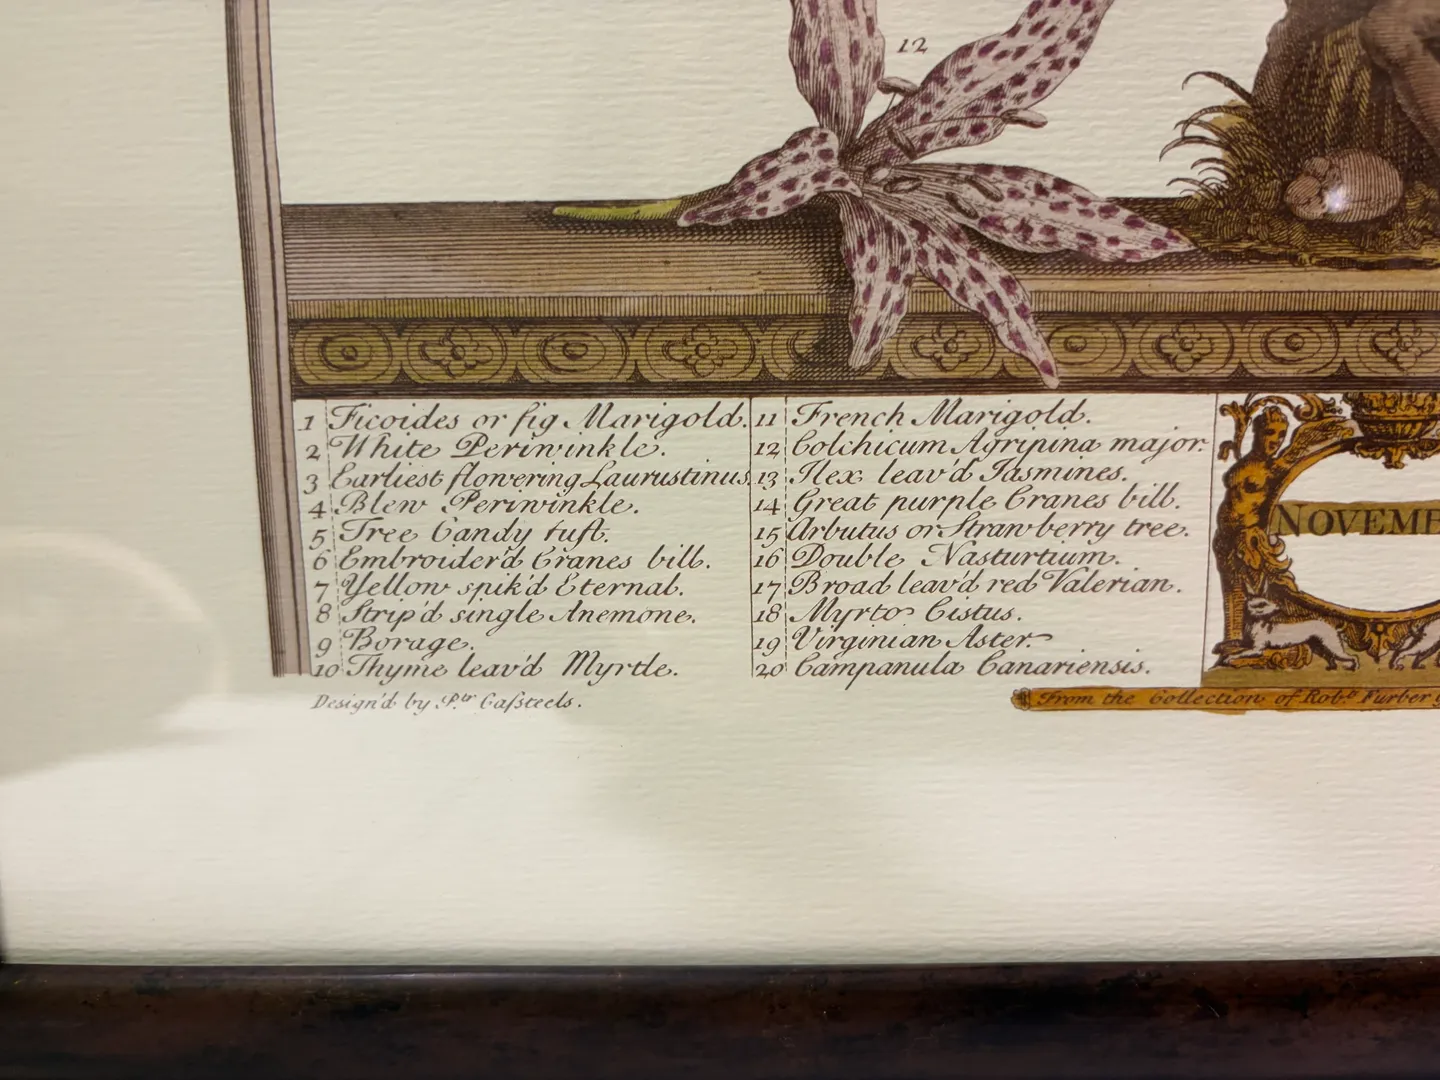 12
1 Ficoides or fig Marigold.
2 White Periwinkle.
3 Earliest flowering Laurustinus.
4 Blew Periwinkle.
5 Tree Candy tuft.
6 Embroider'd Cranes bill.
7 Yellow spik'd Eternal.
8 Strip'd single Anemone.
9 Borage.
10 Thyme leav'd Myrtle.
11 French Marigold.
12 Colchicum Agripina major.
13 Ilex leav'd Jasmines.
14 Great purple Cranes bill.
15 Arbutus or Strawberry tree.
16 Double Nasturtium.
17 Broad leav'd red Valerian.
18 Myrto Cistus.
19 Virginian Aster.
20 Campanula Canariensis.
NOVEMB
Design'd by P.tr Caſteels.
From the Collection of Rob.t Furber